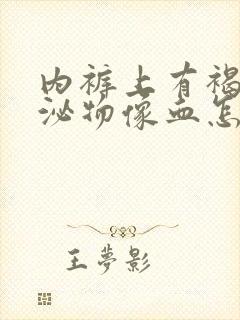 内裤上有褐
泌物像血怎
王夢影